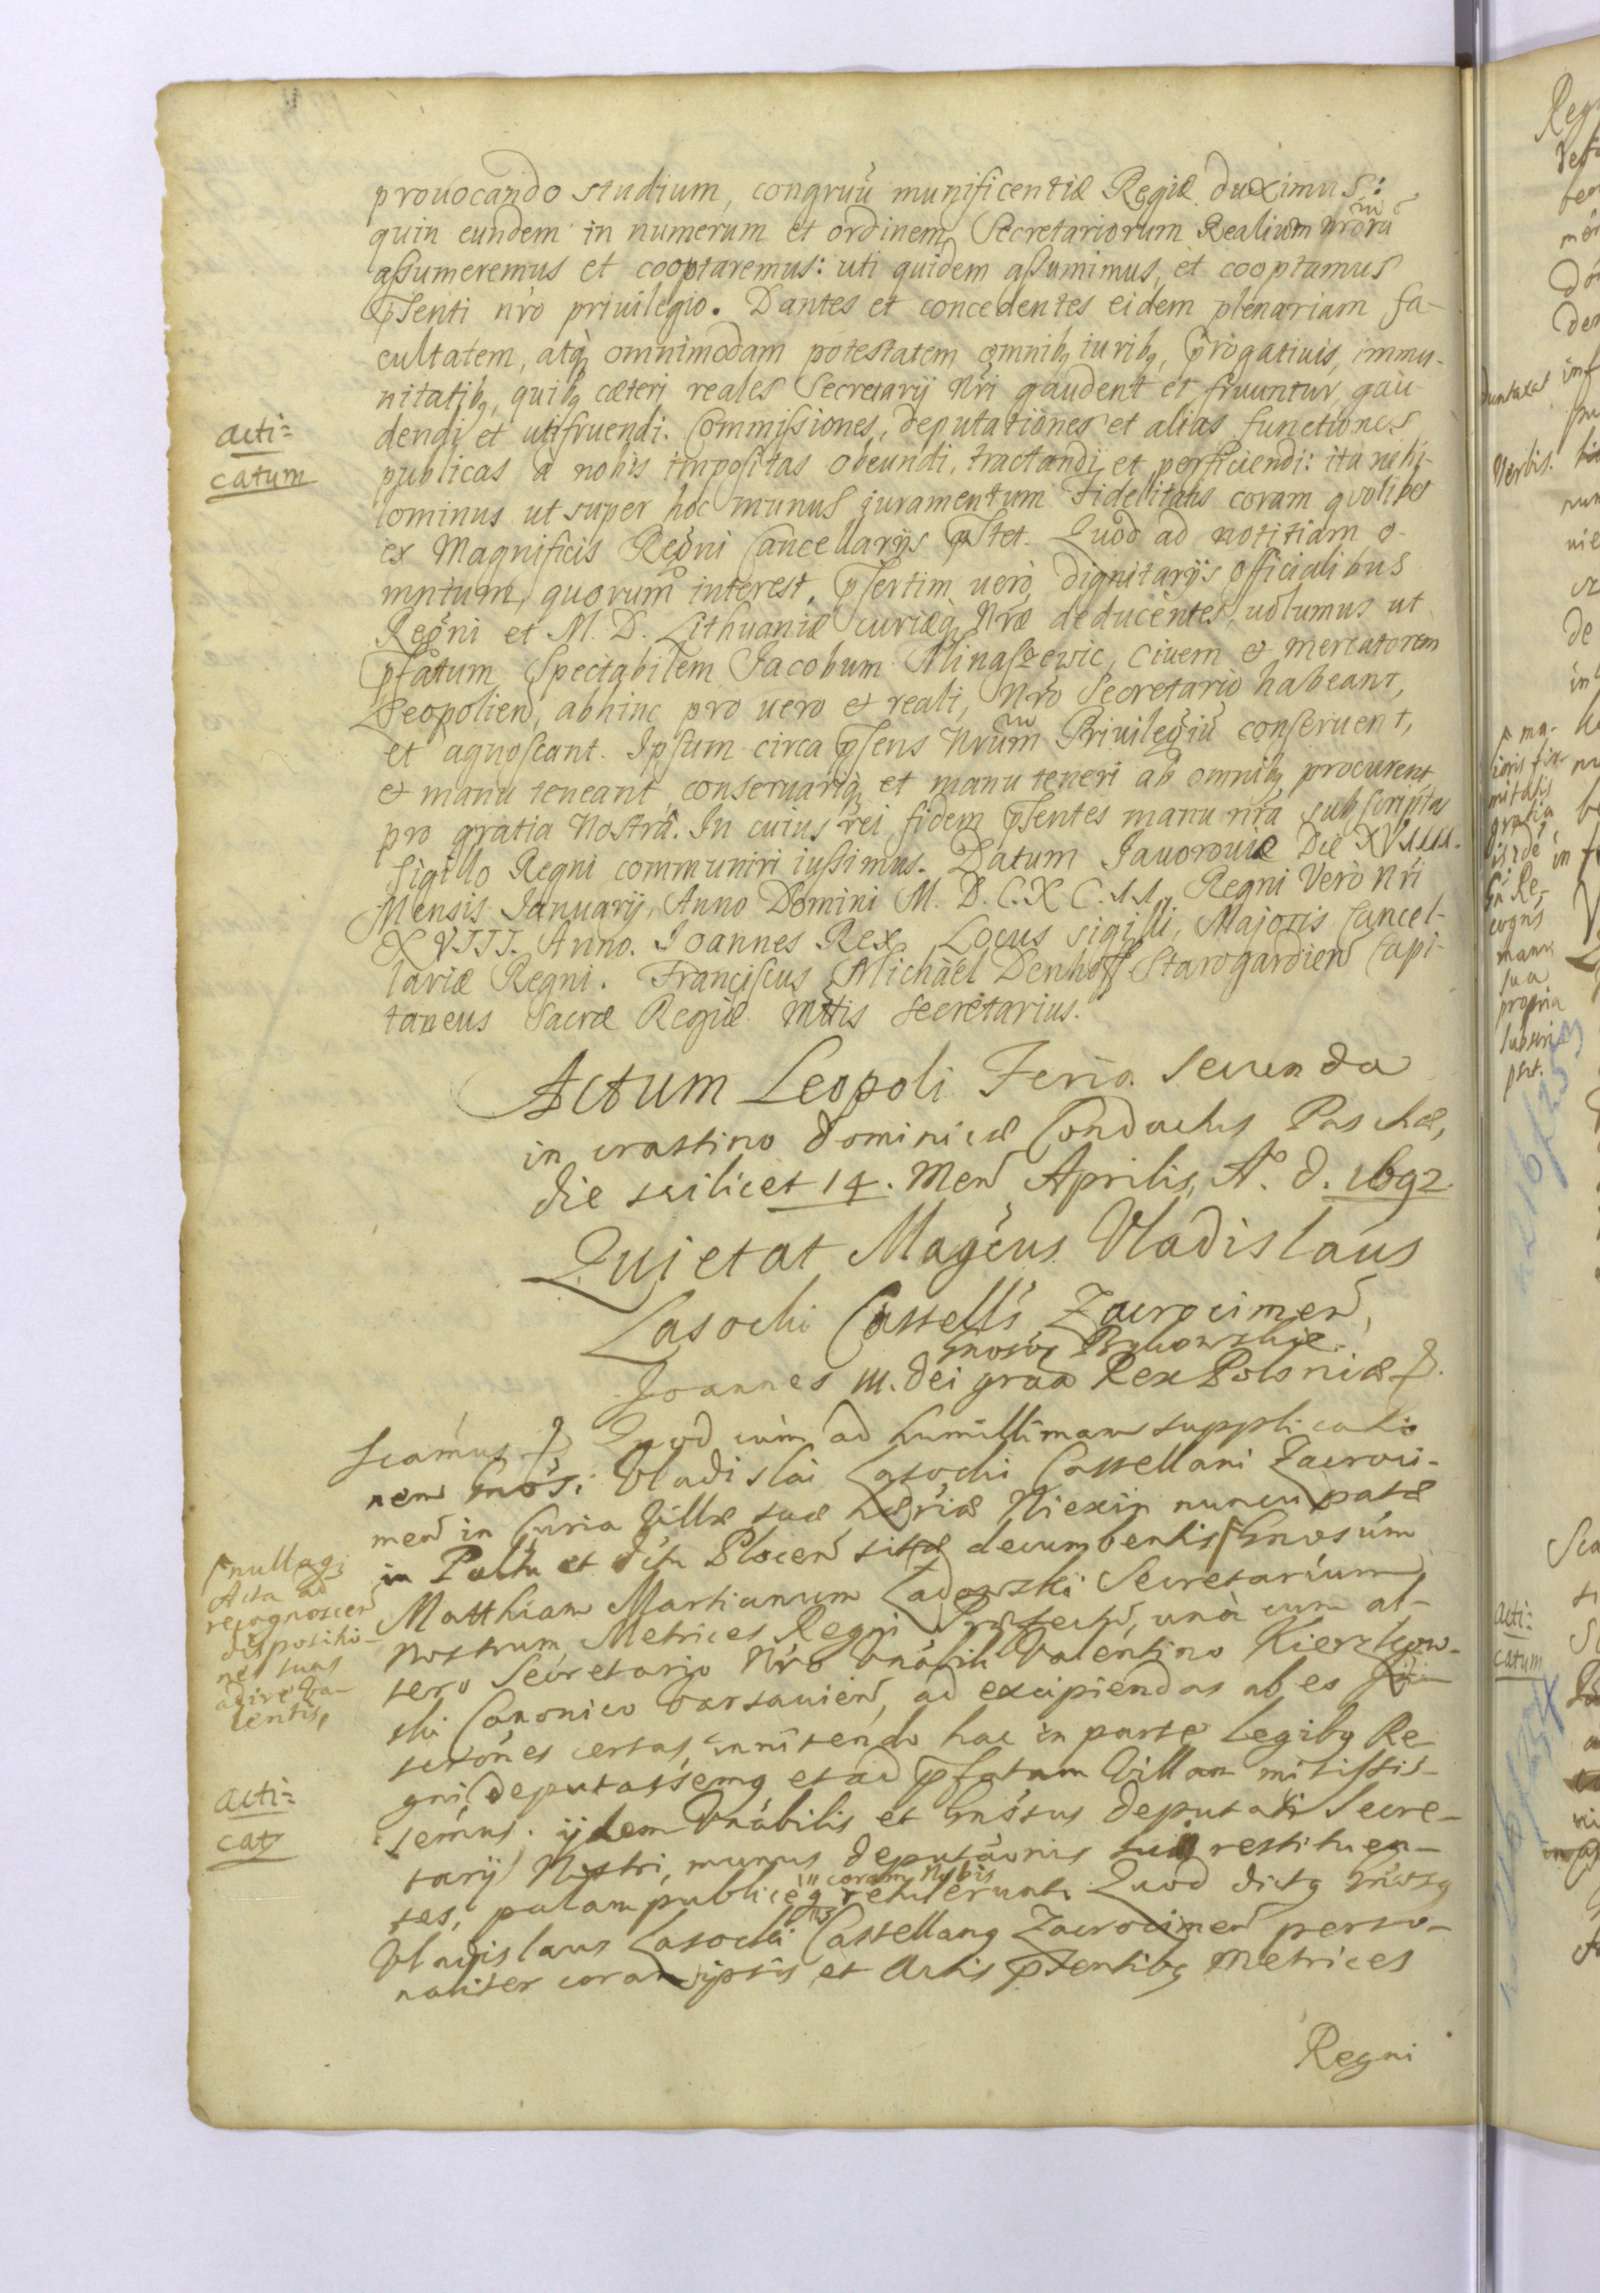 prouocando studium, congruũ munificentiæ Regiæ duximus:
quin eundem in numerum et ordinem Secretariorum Realium nrõrũ
assumeremus et cooptaremus: uti quidem assumimus, et cooptamus
pñsenti nr̃o priuilegio. Dantes et concedentes eidem plenariam fa-
cultatem, atq̨ omnimodam potestatem omnibq̨ iuribq̨, prærogatiuis, immu-
nitatibq̨, quibq̨ cæteri reales Secretarij Nr̃i gaudent et fruuntur gau-
dendi et utifruendi. Commissiones, deputationes et alias functiones
publicas à nobis impositas obeundi, tractandi et perficiendi: ita nihi-
lominus ut super hoc munus juramentum Fidelitatis coram quolibet
ex Magnificis Regni Cancellarijs pr̃stet. Quod ad notitiam o-
mnium, quorum interest, pr̃sertim uerò dignitarijs officialibus
Regni et M. D. Lithuaniæ curiæq̨ Nr̃æ deducentes, uolumus ut
pr̃fatum Spectabilem Jacobum Minaszewic, Ciuem et mercatorem
Leopolien̄, abhinc pro uero et reali, Nr̃o Secretario habeant,
et agnoscant. Ipsum circa pr̃sens Nrũm Priuilegiũ conseruent,
et manu teneant, conseruariq̨ et manu teneri ab omnibq̨ procurent
pro gratia Nostrâ. In cuius rei fidem pr̃sentes manu nrã subscriptas
Sigillo Regni communiri iussimus. Datum Jauorouiæ Die XVIIII.
Mensis Januarij, Anno Domini M. D. C. X C. II. Regni Verò Nr̃i
XVIII. Anno. Joannes Rex. Locus sigilli, Majoris Cancel-
lariæ Regni. Franciscus Michäel Denhoff Starogardien̄ Capi-
taneus Sacræ Regiæ Mttis Secretarius.
acti=
catum
Actum Leopoli Feria Secunda
in crastino Dominicæ Conductus Paschæ,
die scilicet 14. Men̄ Aprilis, A°. d. 1692.
Quietat Magc̃us Vladislaus
Lasocki Castell̃s Zacrocimen̄,
Gnosõs Bykowskie
Joannes III. dei graã Rex Poloniæ &.
Scamus & Quod cùm ad humillimam supplicatio
nem Gnõs: Vladislai Lasocki Castellani Zacroci-
men̄ in Curia Villæ suæ hæriæ Niexin nuncupatæ
in Paltu et dc̃tu Plocen̄ sitæ decumbentis Gnosũm
Matthiam Martianum Ladowski Secretarium
Nostrum Metrices Regni Præfectũ, unà cum al-
tero Secretario Nr̃o Vnãbili Valentino Kierzkow-
ski Canonico Varsauien̄, ad excipiendas ab eo
certas, innitendo hac in parte Legibq̨ Re-
gni, deputassemq̨ et ad pr̃fatam Villam misissis-
semus. ijdem Vnãbilis et Gnõsus deputati Secre-
tarij Nostri, munus deputãonis suæ restituen-
tes, palam publiceq̨ coram Nobis retulerunt. Quod dictq̨ Gnõsq̨
Vladislaus Lasocki Castellanq̨ Zacrocimen̄ perso-
naliter coram ipsis et Actis pr̃sentibq̨ Metrices
nullaq̨
Acta ad
recognoscen̄
dispositio-
nes suas
adire va-
lentis,
acti=
cat̃
Regni
duntaxat
Verbis.
ma-
ioris fir-
mitatis
gratia
manu
sua
propria
subscri
psit.
acti=
catum